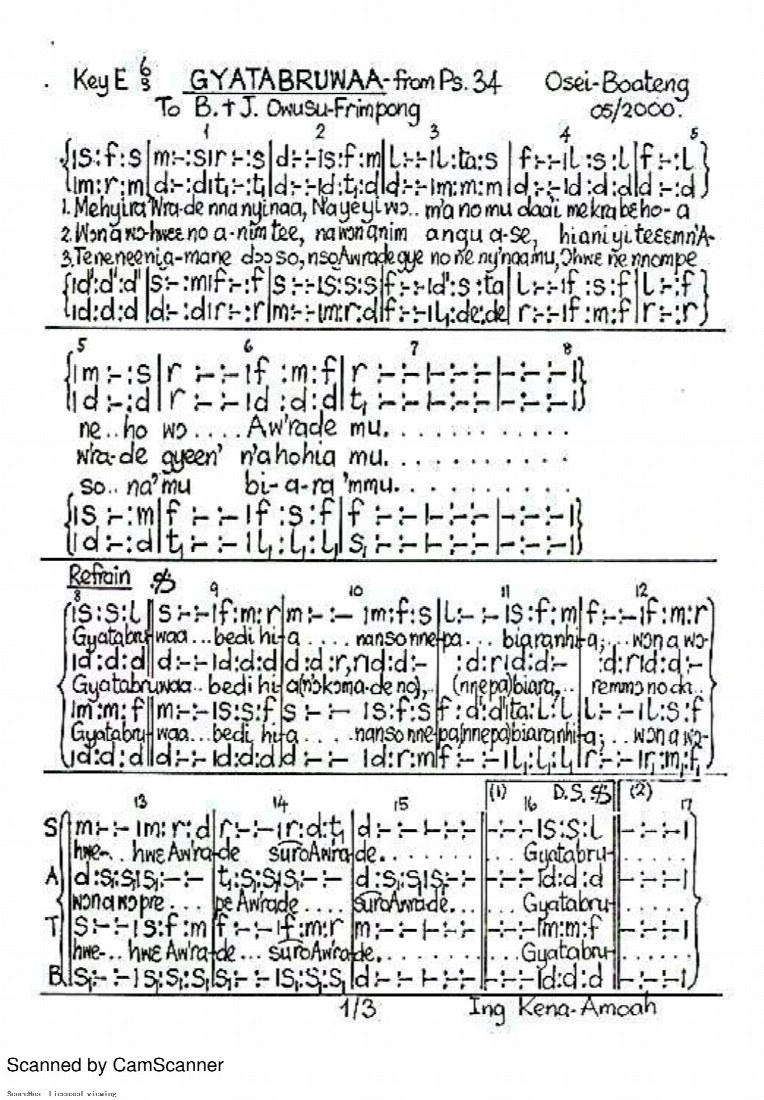 Key E 6/8 GYATABRUWAA-from Ps. 34 Osei-Boateng
To B. + J. Owusu-Frimpong 05/2000.
1 2 3 4 5
{|s:f:s|m:-:s|r:-:s|d:-:-|s:f:m|l:-:-|l:ta:s|f:-:-|l:s:l|f:-:l}
1. Mehyira Wra-de nna nyinaa, N'ayeyi wɔ.. m'a no mu daai me kra be ho-a
2. Wɔn a wo-hwɛɛ no a-nim tee, na wɔn anim angu a-se, hiani yi teɛɛm n'A-
3. Teneneeni a-mane dɔɔ so, nso Awrade gye no ne ny'naa mu, Ɔhwɛ ne nnompe
5 6 7 8
{|m:-:s|r:-:-|f:m:f|r:-:-|-:-:-|-:-:-|-:-:-|}
{|d:-:d|r:-:-|d:d:d|t,:-:-|-:-:-|-:-:-|-:-:-|}
ne..ho wɔ....Aw'rade mu...........
wra-de gyeen' n'ahohia mu..........
so..na'mu bi-a-ra 'mmu...........
{|s:-:m|f:-:-|f:s:f|f:-:-|-:-:-|-:-:-|-:-:-|}
{|d:-:d|t,:-:-|l,:l,:l,|s,:-:-|-:-:-|-:-:-|-:-:-|}
Refrain
8 9 10 11 12
|s:s:l||s:-:-|f:m:r|m:-:-|m:f:s|l:-:-|s:f:m|f:-:-|f:m:r
Gyatabru-waa...bedi hi-a....nanso nne-pa...biaranhi-a;...wɔn a wɔ-
Gyatabruwaa..bedi hi-a(n'kɔma-de no),..(nnepa)biara,..remmɔ no da..
|m:m:f||m:-:-|s:s:f|s:-:-|s:f:s|f:d':d'|ta:l:l|l:-:-|l:s:f
Gyatabru-waa...bedi hi-a....nanso nne-pa(nnepa)biaranhi-a;...wɔn a wɔ-
13 14 15 (1) 16 D.S. (2) 17
S m:-:-|m:r:d|r:-:-|r:d:t,|d:-:-|-:-:-|-:-:-|s:s:l|-:-:-|
hwe-..hwɛ Aw'ra-de suro Aw'ra-de...........Gyatabru-.....
A d:s,:s,|s,:-:-|t,:s,:s,|s,:-:-|d:s,:s,|s,:-:-|-:-:-|d:d:d|-:-:-|
wɔn a wɔ pre...pe Aw'rade....suro Awrade......Gyatabru-.....
T s:-:-|s:f:m|f:-:-|f:m:r|m:-:-|-:-:-|-:-:-|m:m:f|-:-:-|
hwe-..hwɛ Aw'ra-de...suro Aw'ra-de...........Gyatabru-.....
B s,:-:-|s,:s,:s,|s,:-:-|s,:s,:s,|d:-:-|-:-:-|-:-:-|d:d:d|-:-:-|
1/3 Ing Kena-Amoah
Scanned by CamScanner